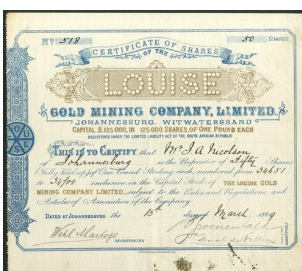 No 518 50 SHARES
CERTIFICATE OF SHARES
OF THE
LOUISE
GOLD MINING COMPANY, LIMITED.
JOHANNESBURG, WITWATERSRAND
CAPITAL £125,000, IN 125,000 SHARES, OF ONE POUND EACH
REGISTERED UNDER THE LIMITED LIABILITY ACT OF THE SOUTH AFRICAN REPUBLIC
THIS IS TO CERTIFY that Mr J. A. Nicolson
of Johannesburg is the Proprietor of Fifty Shares
Fully Paid up of One Pound Sterling each, numbered from 34651
to 34700 inclusive in the Capital Stock of THE LOUISE GOLD
MINING COMPANY LIMITED, subject to the Rules and Regulations and
Articles of Association of the Company.
DATED AT JOHANNESBURG the 15th day of March 1889